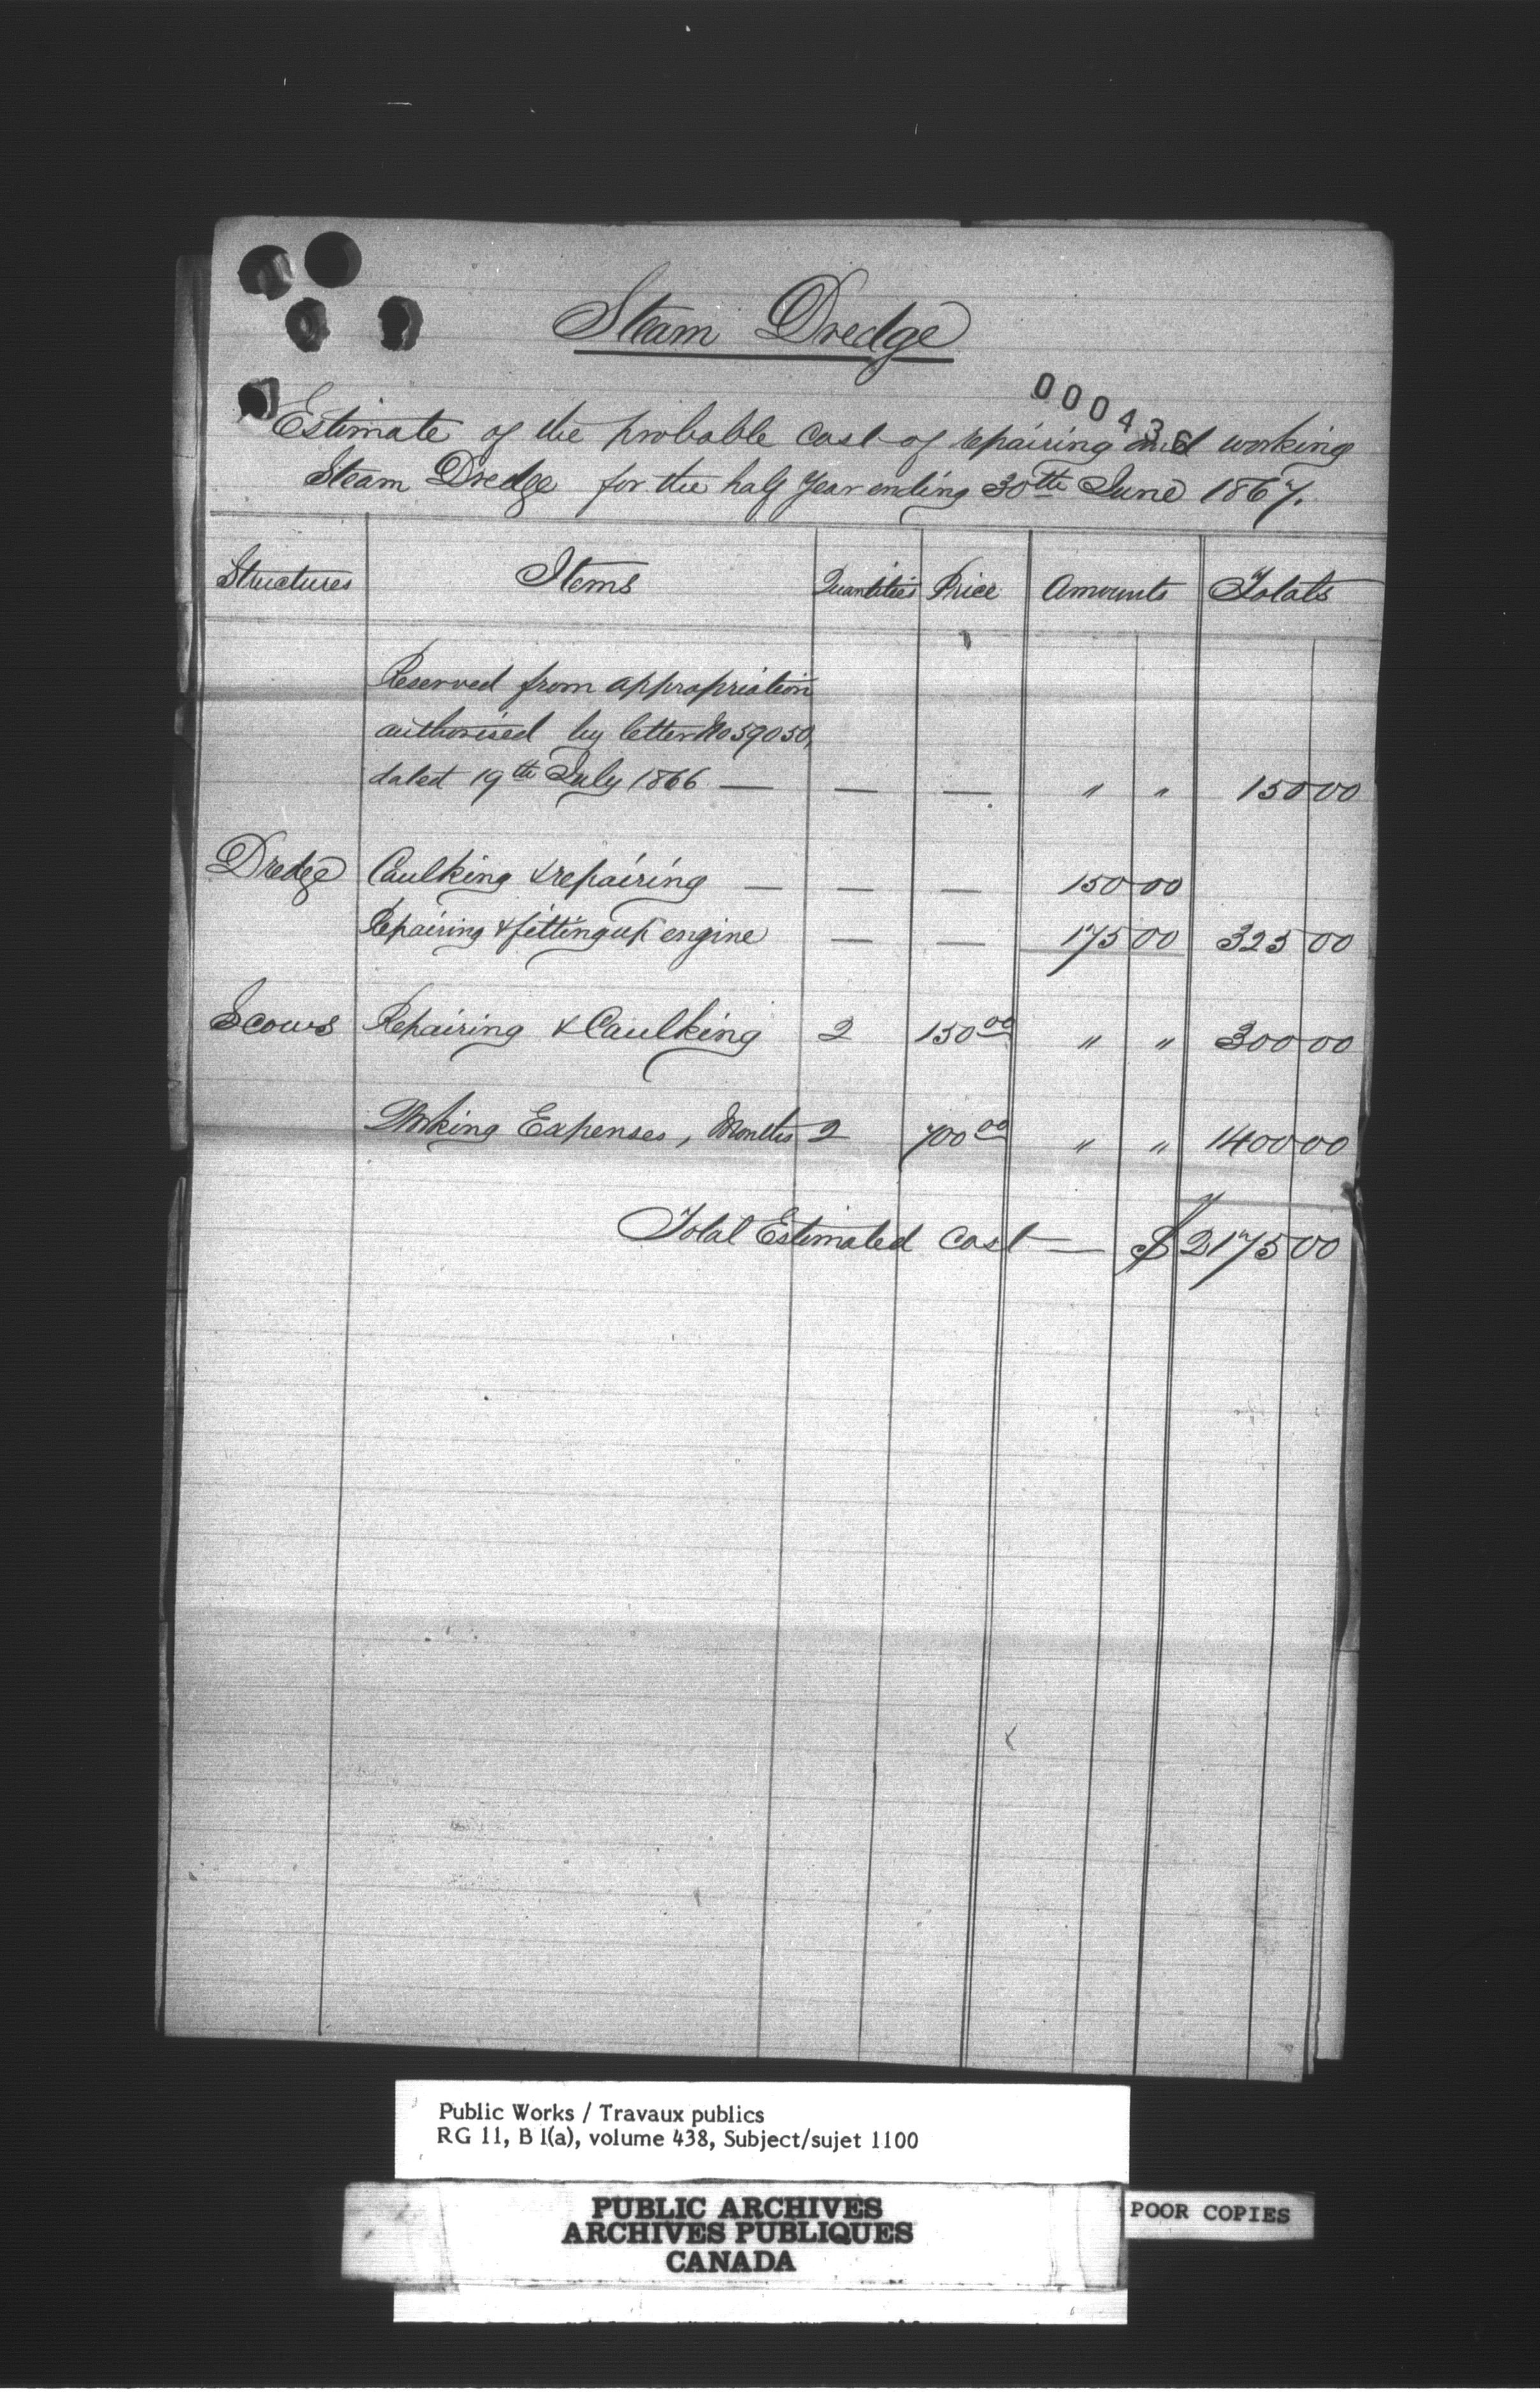 Steam Dredge
000436
Estimate of the probable cost of repairing and working
Steam Dredge for the half Year ending 30th June 1867.
Structures Items Quantities Price Amounts Totals
Reserved from appropriation
authorised by letter No 59050,
dated 19th July 1866 — — — " " 150 00
Dredge Caulking & repairing — — — 150 00
Repairing & fitting up engine — — 175 00 325 00
Scows Repairing & Caulking 2 150 00 " " 300 00
Working Expenses, Months 2 700 00 " " 1400 00
Total Estimated Cost — $ 2175 00
Public Works / Travaux publics
RG 11, B 1(a), volume 438, Subject/sujet 1100
PUBLIC ARCHIVES
ARCHIVES PUBLIQUES
CANADA
POOR COPIES